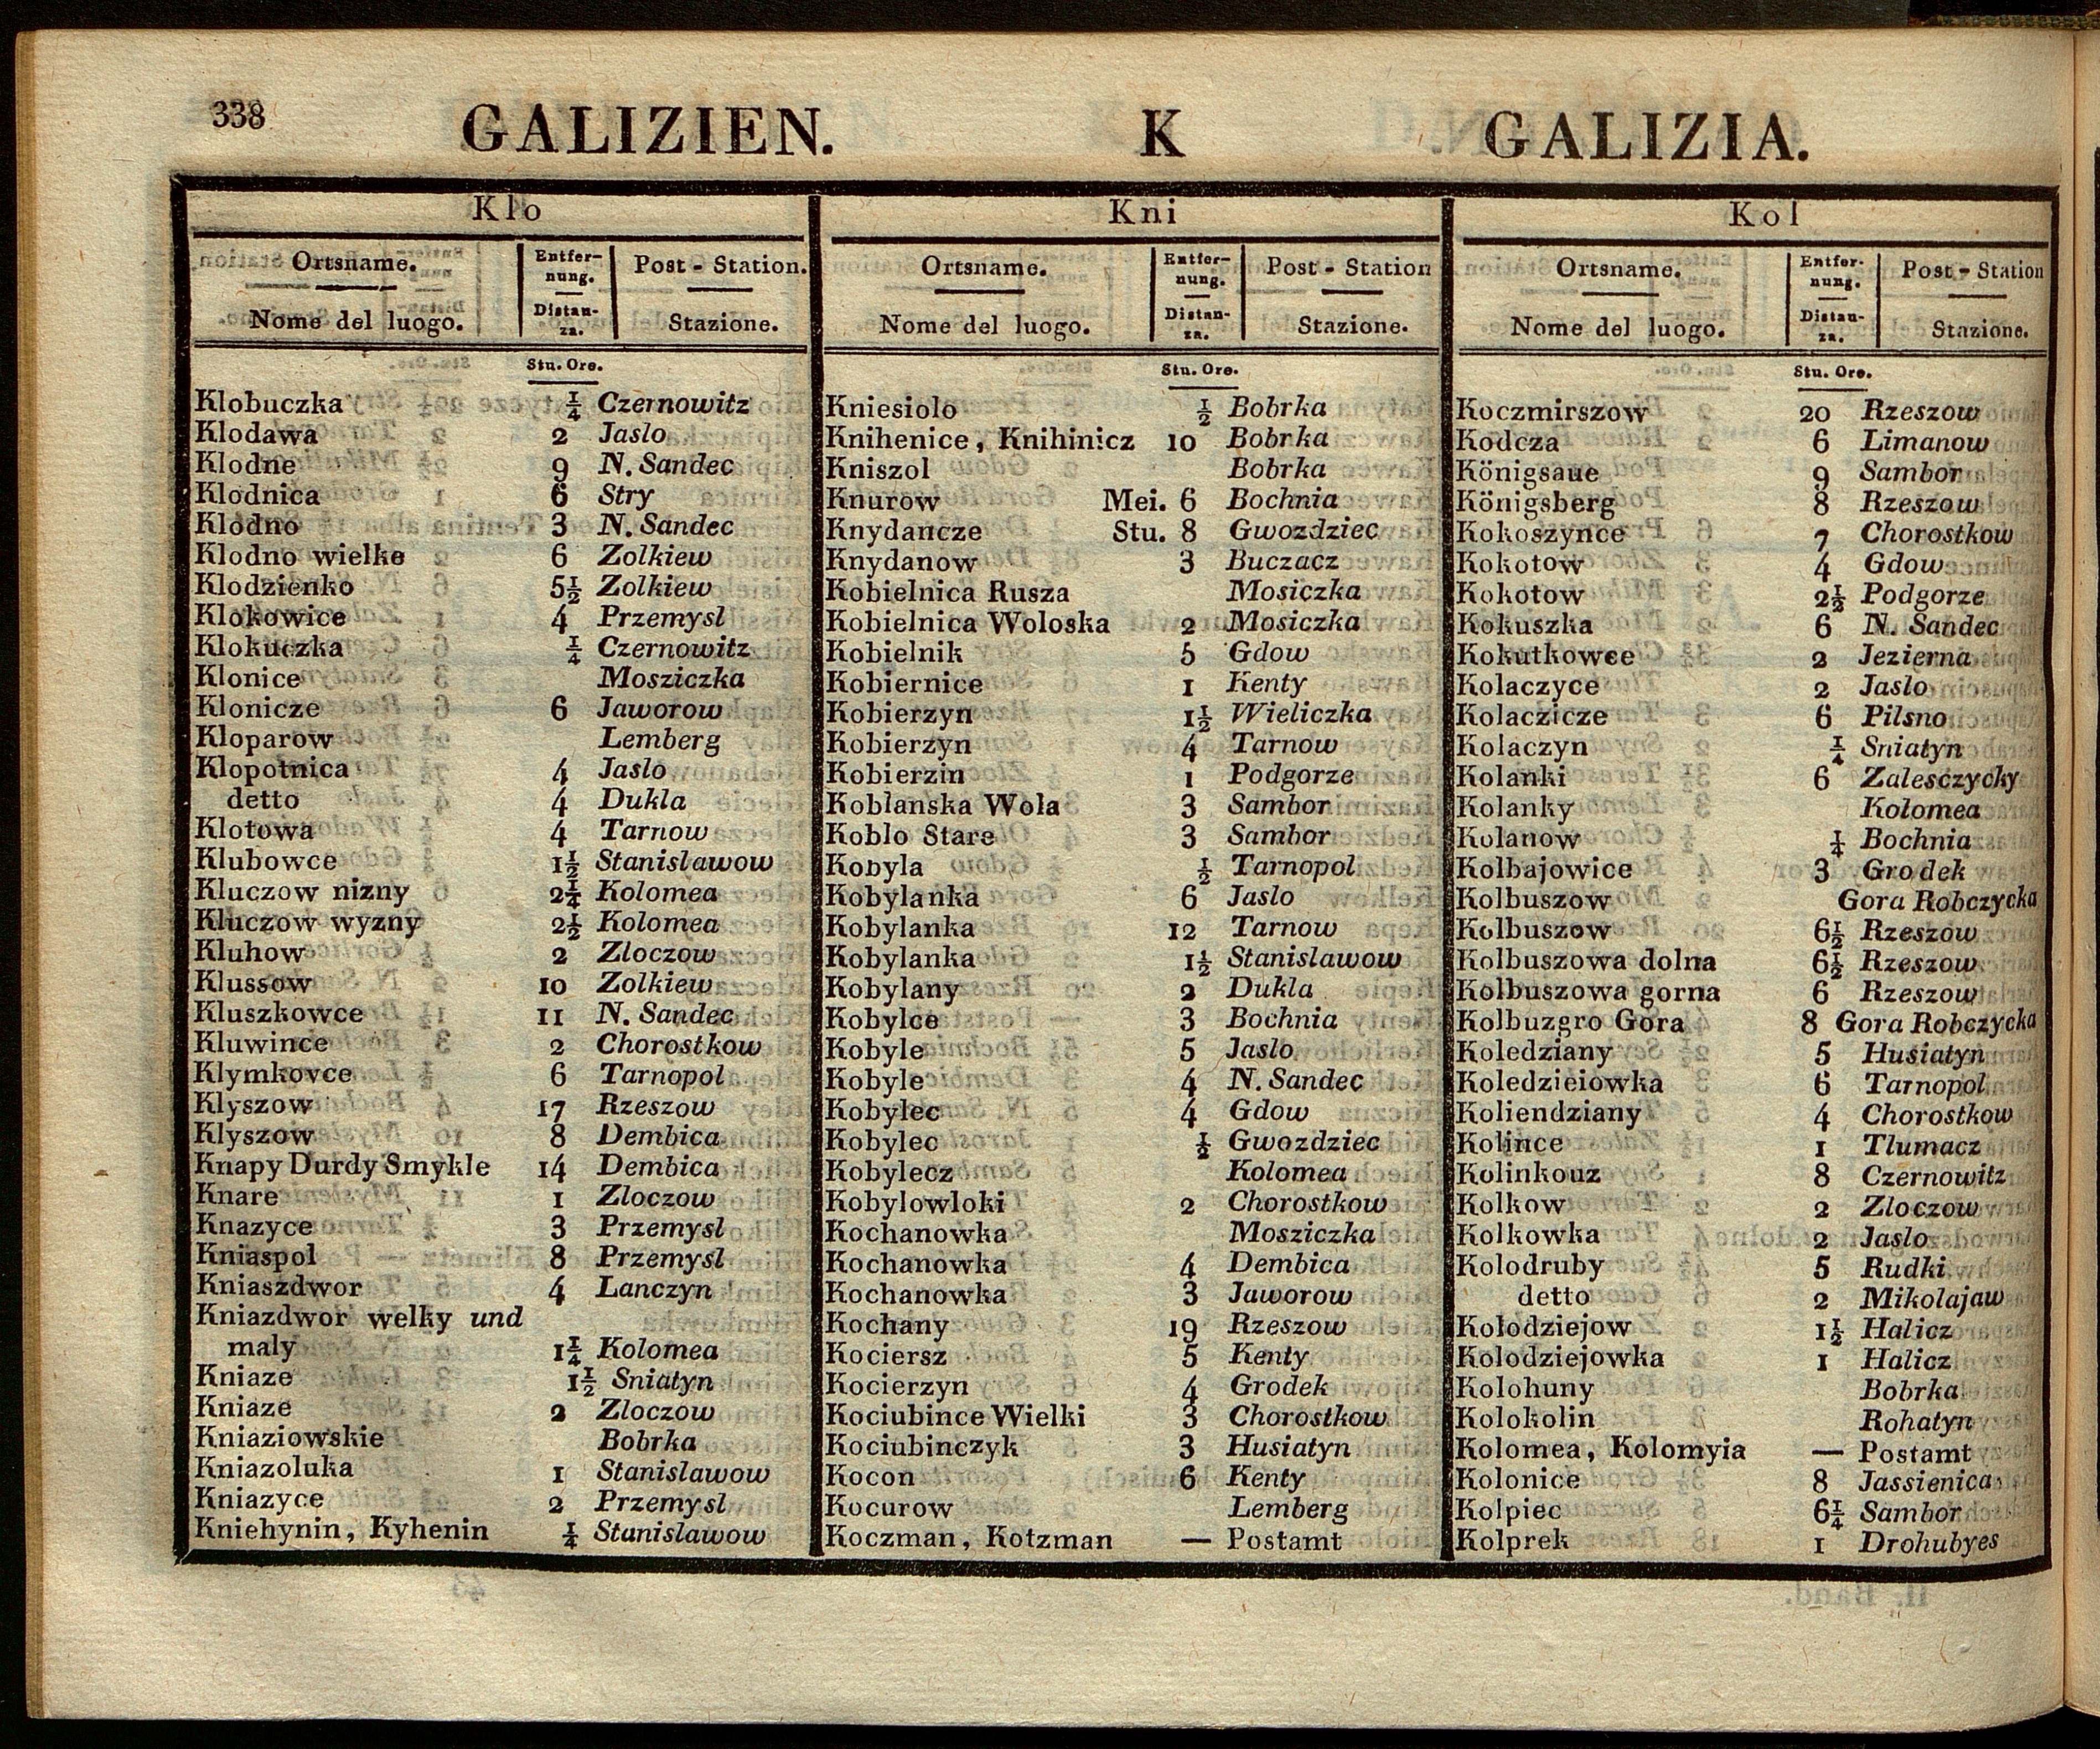 338
GALIZIEN. K GALIZIA.
Klo
Ortsname. Entfer- Post - Station.
nung.
Nome del luogo. Distan- Stazione.
za.
Stu. Ore.
Klobuczka ¼ Czernowitz
Klodawa 2 Jaslo
Klodne 9 N. Sandec
Klodnica 6 Stry
Klodno 3 N. Sandec
Klodno wielke 6 Zolkiew
Klodzienko 5½ Zolkiew
Klokowice 4 Przemysl
Klokuczka ¼ Czernowitz
Klonice Mosziczka
Klonicze 6 Jaworow
Kloparow Lemberg
Klopotnica 4 Jaslo
detto 4 Dukla
Klotowa 4 Tarnow
Klubowce 1½ Stanislawow
Kluczow nizny 2¼ Kolomea
Kluczow wyzny 2½ Kolomea
Kluhow 2 Zloczow
Klussow 10 Zolkiew
Kluszkowce 11 N. Sandec
Kluwince 2 Chorostkow
Klymkovce 6 Tarnopol
Klyszow 17 Rzeszow
Klyszow 8 Dembica
Knapy Durdy Smykle 14 Dembica
Knare 1 Zloczow
Knazyce 3 Przemysl
Kniaspol 8 Przemysl
Kniaszdwor 4 Lanczyn
Kniazdwor welky und
maly 1¼ Kolomea
Kniaze 1½ Sniatyn
Kniaze 2 Zloczow
Kniaziowskie Bobrka
Kniazoluka 1 Stanislawow
Kniazyce 2 Przemysl
Kniehynin, Kyhenin ¼ Stanislawow
Kni
Ortsname. Entfer- Post - Station
nung.
Nome del luogo. Distan- Stazione.
za.
Stu. Ore.
Kniesiolo ½ Bobrka
Knihenice, Knihinicz 10 Bobrka
Kniszol Bobrka
Knurow Mei. 6 Bochnia
Knydancze Stu. 8 Gwozdziec
Knydanow 3 Buczacz
Kobielnica Rusza Mosiczka
Kobielnica Woloska 2 Mosiczka
Kobielnik 5 Gdow
Kobiernice 1 Kenty
Kobierzyn 1½ Wieliczka
Kobierzyn 4 Tarnow
Kobierzin 1 Podgorze
Koblanska Wola 3 Sambor
Koblo Stare 3 Sambor
Kobyla ½ Tarnopol
Kobylanka 6 Jaslo
Kobylanka 12 Tarnow
Kobylanka 1½ Stanislawow
Kobylany 2 Dukla
Kobylce 3 Bochnia
Kobyle 5 Jaslo
Kobyle 4 N. Sandec
Kobylec 4 Gdow
Kobylec ½ Gwozdziec
Kobylecz Kolomea
Kobylowloki 2 Chorostkow
Kochanowka Mosziczka
Kochanowka 4 Dembica
Kochanowka 3 Jaworow
Kochany 19 Rzeszow
Kociersz 5 Kenty
Kocierzyn 4 Grodek
Kociubince Wielki 3 Chorostkow
Kociubinczyk 3 Husiatyn
Kocon 6 Kenty
Kocurow Lemberg
Koczman, Kotzman — Postamt
Kol
Ortsname. Entfer- Post - Station
nung.
Nome del luogo. Distan- Stazione.
za.
Stu. Ore.
Koczmirszow 20 Rzeszow
Kodcza 6 Limanow
Königsaue 9 Sambor
Königsberg 8 Rzeszow
Kokoszynce 7 Chorostkow
Kokotow 4 Gdow
Kokotow 2½ Podgorze
Kokuszka 6 N. Sandec
Kokutkowce 2 Jezierna
Kolaczyce 2 Jaslo
Kolaczicze 6 Pilsno
Kolaczyn ¼ Sniatyn
Kolanki 6 Zalesczycky
Kolanky Kolomea
Kolanow ¼ Bochnia
Kolbajowice 3 Grodek
Kolbuszow Gora Robczycka
Kolbuszow 6½ Rzeszow
Kolbuszowa dolna 6½ Rzeszow
Kolbuszowa gorna 6 Rzeszow
Kolbuzgro Gora 8 Gora Robczycka
Koledziany 5 Husiatyn
Koledzieiowka 6 Tarnopol
Koliendziany 4 Chorostkow
Kolince 1 Tlumacz
Kolinkouz 8 Czernowitz
Kolkow 2 Zloczow
Kolkowka 2 Jaslo
Kolodruby 5 Rudki
detto 2 Mikolajaw
Kolodziejow 1½ Halicz
Kolodziejowka 1 Halicz
Kolohuny Bobrka
Kolokolin Rohatyn
Kolomea, Kolomyia — Postamt
Kolonice 8 Jassienica
Kolpiec 6¼ Sambor
Kolprek 1 Drohubyes